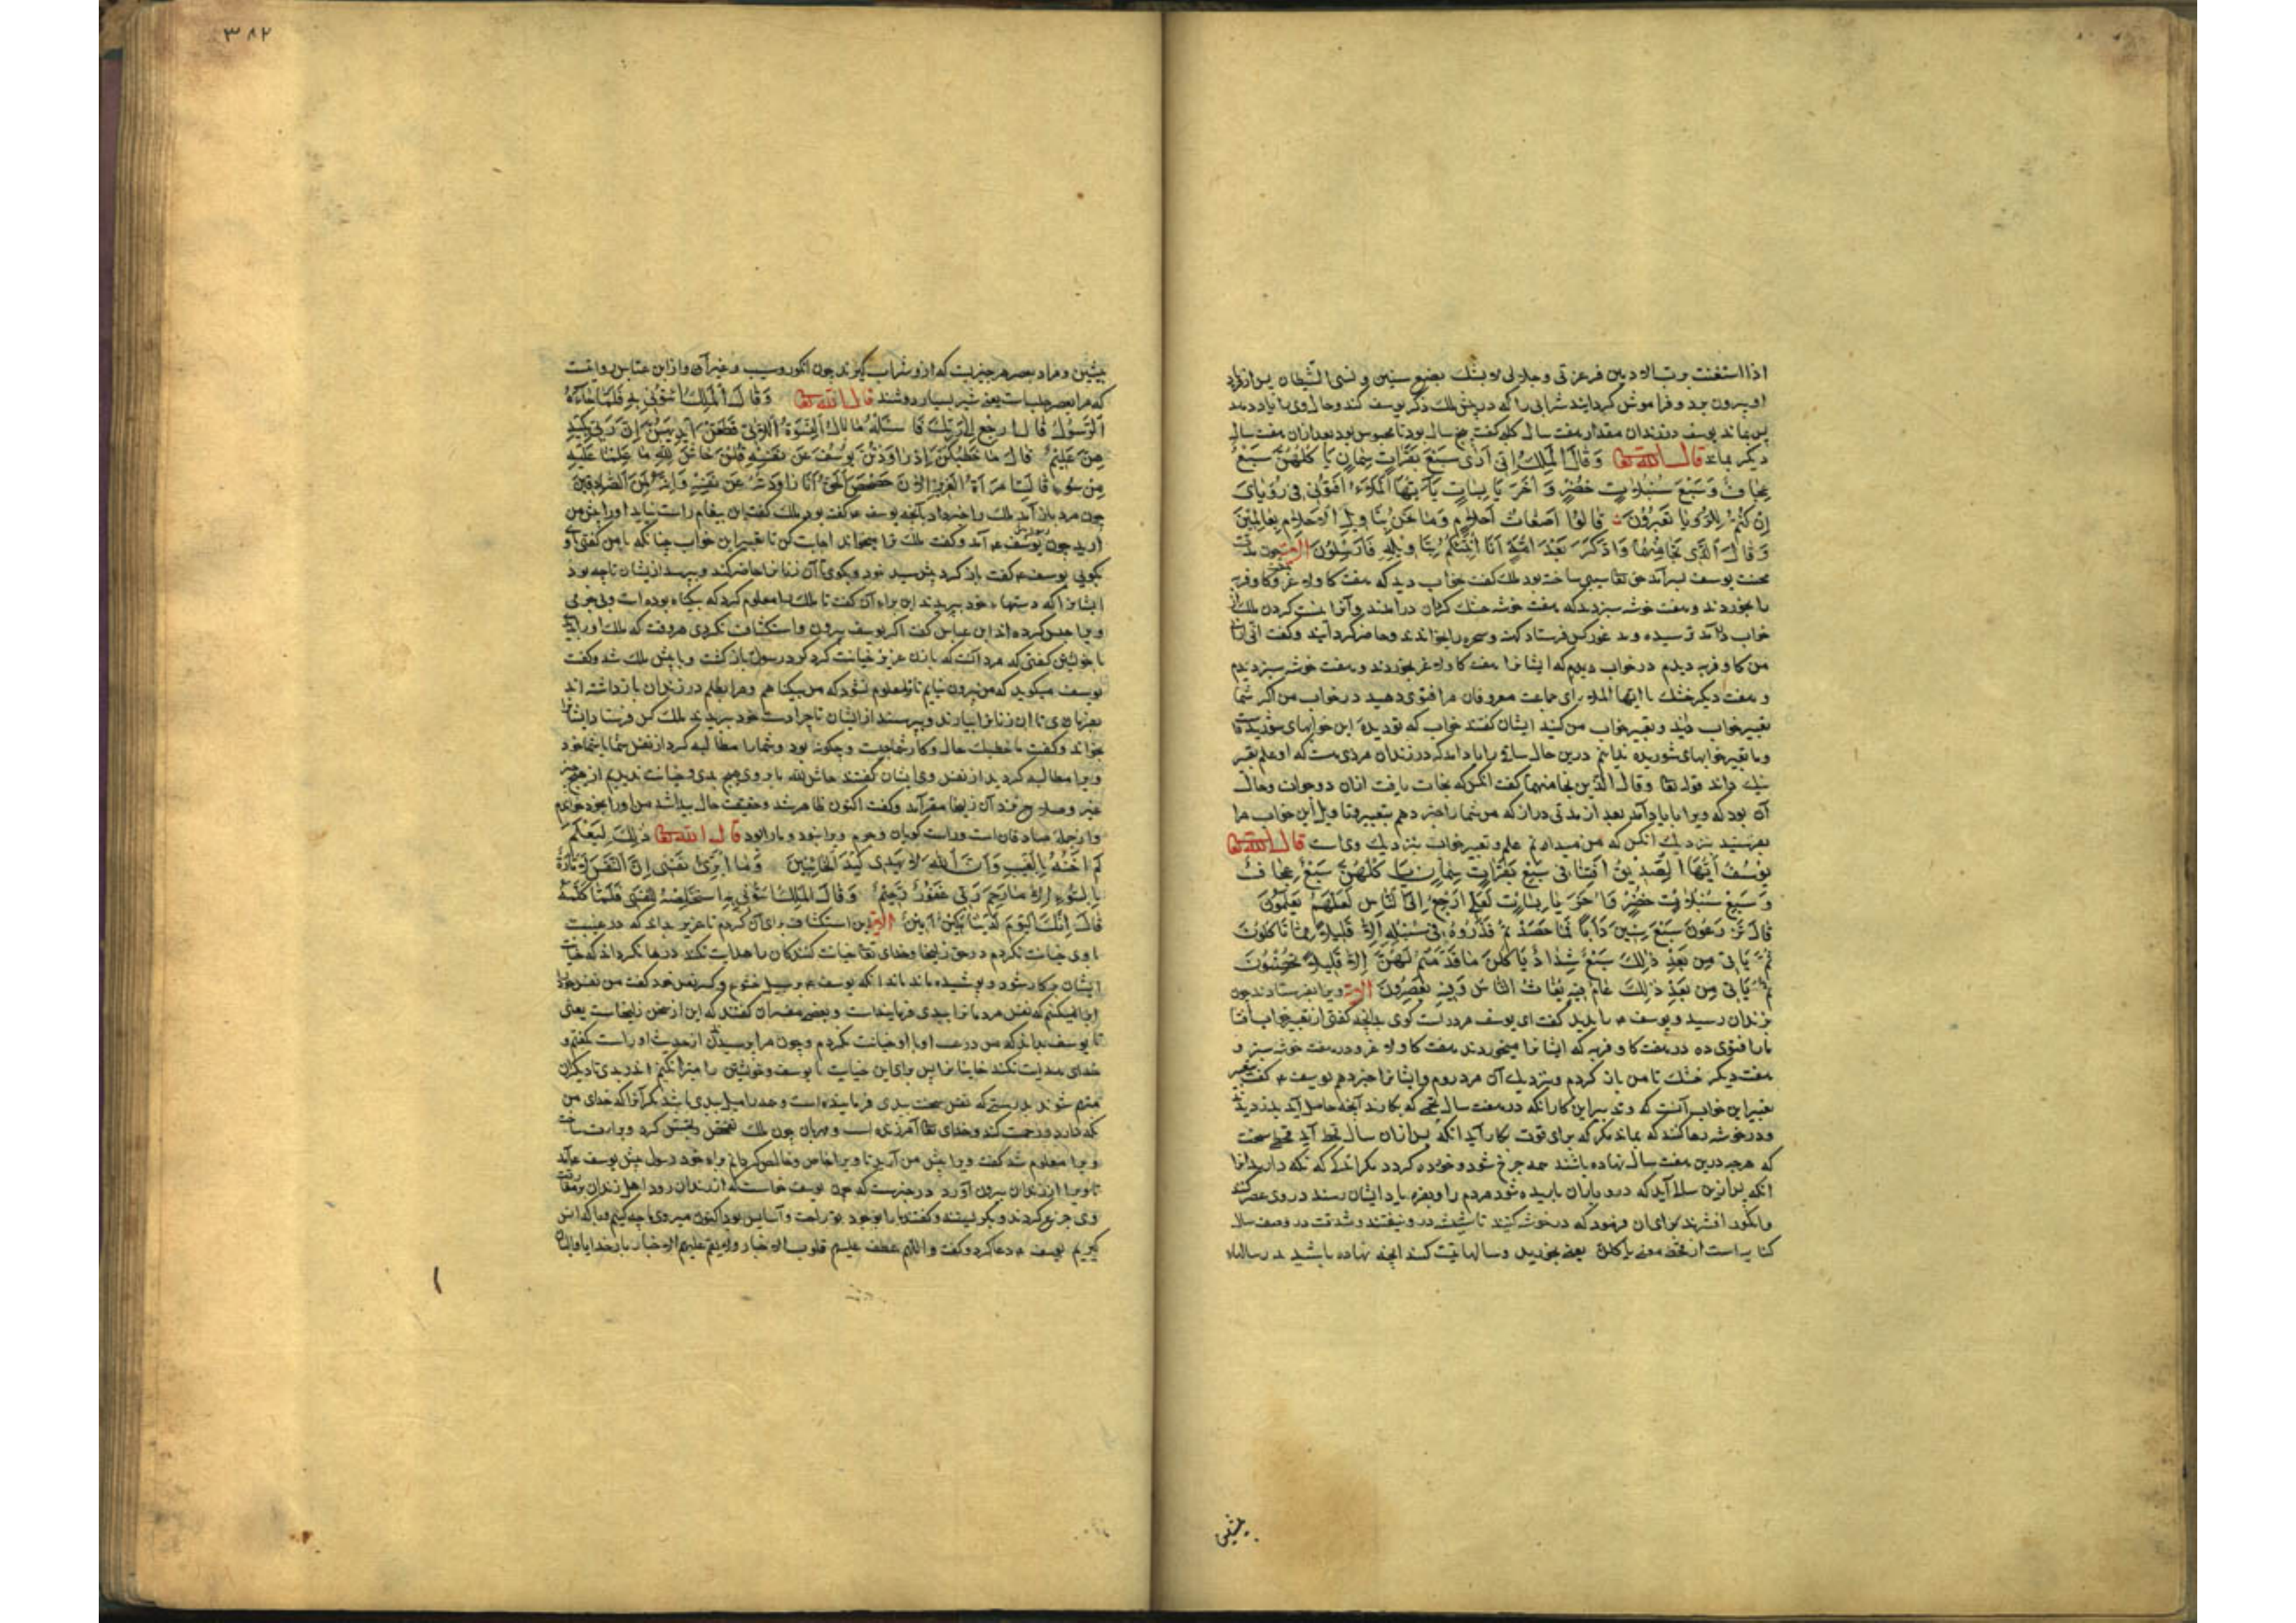 اذا استغثت برب الادمیین فو عزتی و جلالی لا بثنک بضع سنین و نسی الشیطان پس از یاد
او بیرون برد و فراموش گردانید شرابی را که در پیش ملک ذکر یوسف کند و حال وی با یاد دهد
پس بماند یوسف در زندان مقدار هفت سال کلبی گفت پنج سال بود تا محبوس بود بعد از ان هفت سال
دیکر بماند قال الله تعا وَقَالَ الْمَلِكُ اِنّی اَرَی سَبْعَ بَقَرَاتٍ سِمَانٍ یَاْكُلُهُنَّ سَبْعٌ
عِجَافٌ وَ سَبْعَ سُنْبُلَاتٍ خُضْرٍ وَ اُخَرَ یَابِسَاتٍ یَا اَیُّهَا الْمَلَاُ اَفْتُونِی فِی رُؤْیَایَ
اِنْ كُنْتُمْ لِلرُّؤْیَا تَعْبُرُونَ قَالُوا اَضْغَاثُ اَحْلَامٍ وَمَا نَحْنُ بِتَاْوِیلِ الْاَحْلَامِ بِعَالِمِینَ
وَ قَالَ الَّذِی نَجَا مِنْهُمَا وَادَّكَرَ بَعْدَ اُمَّةٍ اَنَا اُنَبِّئُكُمْ بِتَاْوِیلِهِ فَاَرْسِلُونِ چون مدت
محنت یوسف بسر آمد حق تعا سببی ساخته بود ملک گفت خواب دید که هفت کاو لاغر کاو فربه
را بخوردند و هفت خوشه سبز دید که هفت خوشه خشک
خواب در آمد ترسیده و کس فرستاد و سحره را بخواندند و حاضر کردانید و گفت انی اری
من کاو فربه دیدم در خواب دیدم که ایشانرا هفت کاو لاغر بخوردند و هفت خوشه سبز دیدم
و هفت دیکر خشک یا ایها الملاء ای جماعت معروفان مرا فتوی دهید در خواب من اکر شما
تعبیر خواب دانید و تعبیر خواب من کنید ایشان گفتند خواب که تو دیده این خوابهای شوریده است
و ما تعبیر خوابهای شوریده ندانیم درین حال ساقی را یاد آمد که در زندان مردی هست که او علم تعبیر
نیک داند قوله تعا وقال الذی نجا منهما گفت انکس که نجات یافت ازان دو جوان و حال
آن بود که ویرا با یاد آمد بعد از مدتی دراز که من شما را خبر دهم بتعبیر و تاویل این خواب مرا
بفرستید بنزدیک انکس که من میدانم علم و تعبیر خواب بنزدیک وی است قال الله تعا
یُوسُفُ اَیُّهَا الصِّدِّیقُ اَفْتِنَا فِی سَبْعِ بَقَرَاتٍ سِمَانٍ یَاْكُلُهُنَّ سَبْعٌ عِجَافٌ
وَ سَبْعِ سُنْبُلَاتٍ خُضْرٍ وَ اُخَرَ یَابِسَاتٍ لَعَلِّی اَرْجِعُ اِلَی النَّاسِ لَعَلَّهُمْ یَعْلَمُونَ
قَالَ تَزْرَعُونَ سَبْعَ سِنِینَ دَاَبًا فَمَا حَصَدْتُمْ فَذَرُوهُ فِی سُنْبُلِهِ اِلَّا قَلِیلًا مِمَّا تَاْكُلُونَ
ثُمَّ یَاْتِی مِنْ بَعْدِ ذٰلِكَ سَبْعٌ شِدَادٌ یَاْكُلْنَ مَا قَدَّمْتُمْ لَهُنَّ اِلَّا قَلِیلًا مِمَّا تُحْصِنُونَ
ثُمَّ یَاْتِی مِنْ بَعْدِ ذٰلِكَ عَامٌ فِیهِ یُغَاثُ النَّاسُ وَفِیهِ یَعْصِرُونَ ویرا بفرستادند چون
بزندان رسید و یوسف را بدید گفت ای یوسف مرد راست کوی بدانچه گفتی از تعبیر خواب افتنا
ما را فتوی ده در هفت کاو فربه که ایشانرا میخوردند هفت کاو لاغر و در هفت خوشه سبز و
هفت دیکر خشک تا من باز کردم و بنزدیک آن مردم روم و ایشانرا خبر دهم یوسف گفت
تعبیر این خواب آنست که در هفت سال تخمی که بکارند آنچه حاصل آید
و در خوشه رها کنند که بماند مکر که برای قوت بکار آید انکه پس ازان سال قحط آید قحطی سخت
که هرچه درین هفت سال نهاده باشند همه خرج شود و خورده کردد مکر اندکی که نکه دارید انرا
انکه پس ازین سالی آید که درو باران باریده شود مردم را
و انکور افشرند برای ان فرمود که در خوشه کنید تا شپش در و نیفتد و شدت در وصف سال
کنایه است از قحط معنی یاکلن یعنی بخورید و سالها آنچه نهاده باشید در سالهاء
پیشین
۳۸۲
پیشین و مراد بعصر هر چیزیست که ازو شراب کیرند چون انکور و سیب و غیر آن و از ابن عباس روایتست
که مراد بعصر حلب است یعنی شیر بسیار دوشند قال الله تعا وَقَالَ الْمَلِكُ ائْتُونِی بِهِ فَلَمَّا جَاءَهُ
الرَّسُولُ قَالَ ارْجِعْ اِلَی رَبِّكَ فَاسْئَلْهُ مَا بَالُ النِّسْوَةِ اللَّاتِی قَطَّعْنَ اَیْدِیَهُنَّ اِنَّ رَبِّی بِكَیْدِ
هِنَّ عَلِیمٌ قَالَ مَا خَطْبُكُنَّ اِذْ رَاوَدْتُنَّ یُوسُفَ عَنْ نَفْسِهِ قُلْنَ حَاشَ لِلّٰهِ مَا عَلِمْنَا عَلَیْهِ
مِنْ سُوءٍ قَالَتِ امْرَاَةُ الْعَزِیزِ الْآنَ حَصْحَصَ الْحَقُّ اَنَا رَاوَدْتُهُ عَنْ نَفْسِهِ وَاِنَّهُ لَمِنَ الصَّادِقِینَ
چون مرد باز آمد ملک را خبر داد بآنچه یوسف گفته بود ملک گفت این پیغام راست نیاید او را پیش من
آرید چون یوسف آمد و گفت ملک ترا میخواند اجابت کن تا تعبیر این خواب چنانکه با من گفتی با او
بکویی یوسف گفت باز کرد پیش سید خود و بکوی تا آن زنانرا حاضر کند و بپرسد از یشان تا چه بود
ایشانرا که دستهاء خود ببریدند این براء آن گفت تا ملک را معلوم کردد که بیکناه بوده است و بی جرمی
ویرا حبس کرده اند ابن عباس گفت اکر یوسف بیرون و استکشاف نکردی هر وقت که ملک او را
با خویشتن گفتی که مرد آنست که با زن عزیز خیانت کرد رسول باز کشت و با پیش ملک شد و گفت
یوسف میکوید که من بیرون نیایم تا ترا معلوم نشود که من بیکناهم و مرا بظلم در زندان بازداشته اند
بفرمای تا ان زنانرا بیارند و بپرسند از ایشان تا چرا دست خود ببریدند ملک کس فرستاد ایشانرا
بخواند و گفت ما خطبکن حال و کار شما چیست و چکونه بود و شما را مطالبه کرد از نفس شما یا شما خود
ویرا مطالبه کردید از نفس وی ایشان گفتند حاش لله ما بر وی هیچ بدی و خیانت ندیدیم
خیر و صلاح زن زلیخا مقر آمد و گفت اکنون ظاهر شد و حقیقت حال پیدا شد من او را بخود خواندم
و از جملهٔ صادقان است و راست کویان و جرم ویرا نبود و مارا بود قال الله تعا ذٰلِكَ لِیَعْلَمَ اَنِّی
لَمْ اَخُنْهُ بِالْغَیْبِ وَاَنَّ اللّٰهَ لَا یَهْدِی كَیْدَ الْخَائِنِینَ وَمَا اُبَرِّئُ نَفْسِی اِنَّ النَّفْسَ لَاَمَّارَةٌ
بِالسُّوءِ اِلَّا مَا رَحِمَ رَبِّی غَفُورٌ رَحِیمٌ وَقَالَ الْمَلِكُ ائْتُونِی بِهِ اَسْتَخْلِصْهُ لِنَفْسِی فَلَمَّا كَلَّمَهُ
قَالَ اِنَّكَ الْیَوْمَ لَدَیْنَا مَكِینٌ اَمِینٌ این استکشاف برای آن کردم تا عزیز بداند که در غیبت
با وی خیانت نکردم در حق زلیخا و خدای تعا خیانت کنندکان را هدایت نکند
ایشان بیکار شود و پوشیده ماند انکه یوسف بر سبیل خشوع و کسر نفس خود گفت من نفس خود را
ابرا نمیکنم که نفس مردمانرا ببدی فرماینداست و بعضی مفسران گفتند که این از سخن زلیخاست یعنی
تا یوسف بداند که من در غیب او با او خیانت نکردم و چون مرا پرسیدند از حدیث او راست گفتم و
خدای هدایت نکند خاینانرا پس برای این خیانت با یوسف و خویشتن را مبرا نکنم از بدی تا دیکران
متهم شوند بدرستی که نفس سخت ببدی فرماینده است و همه را میل ببدی باشد مکر آنرا که خدای من
نکه دارد و رحمت کند و خدای تعا آمرزنده است و مهربان چون ملک تفحص و تفتیش کرد و براءت ساحت
ویرا معلوم شد گفت ویرا پیش من آرید تا ویرا خاص و خالص کردانم براء خود رسول پیش یوسف آمد
تا ویرا از زندان بیرون آورد در خبرست که چون یوسف خاست که از زندان رود اهل زندان بر مفارقت
وی جزع کردند و بکریستند و گفتند ما را بوجود تو راحت و آسایش بود اکنون میروی ما چه کنیم و با که انس
کیریم یوسف دعا کرد و گفت اللهم عطف علیهم قلوب الاخیار ولا تعم علیهم الاخبار بار خدایا